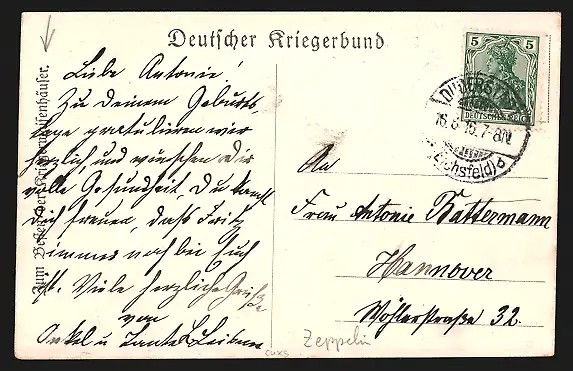 Deutscher Kriegerbund
Zum Besten der Kriegerwaisenhäuser.
Liebe Antonie!
Zu Deinem Geburts-
tage gratulieren wir
herzlich, und wünschen Dir
volle Gesundheit, Du kannst
Dich freuen, dass Fritz
immer noch bei Euch
ist. Viele herzliche Grüße
von
Onkel u Tante
5 5
DEUTSCHES REICH
DUDERSTADT
16.8.16.7-8N.
(Eichsfeld)
An
Frau Antonie Battermann
Hannover
Wöhlerstraße 32.
Zeppelin